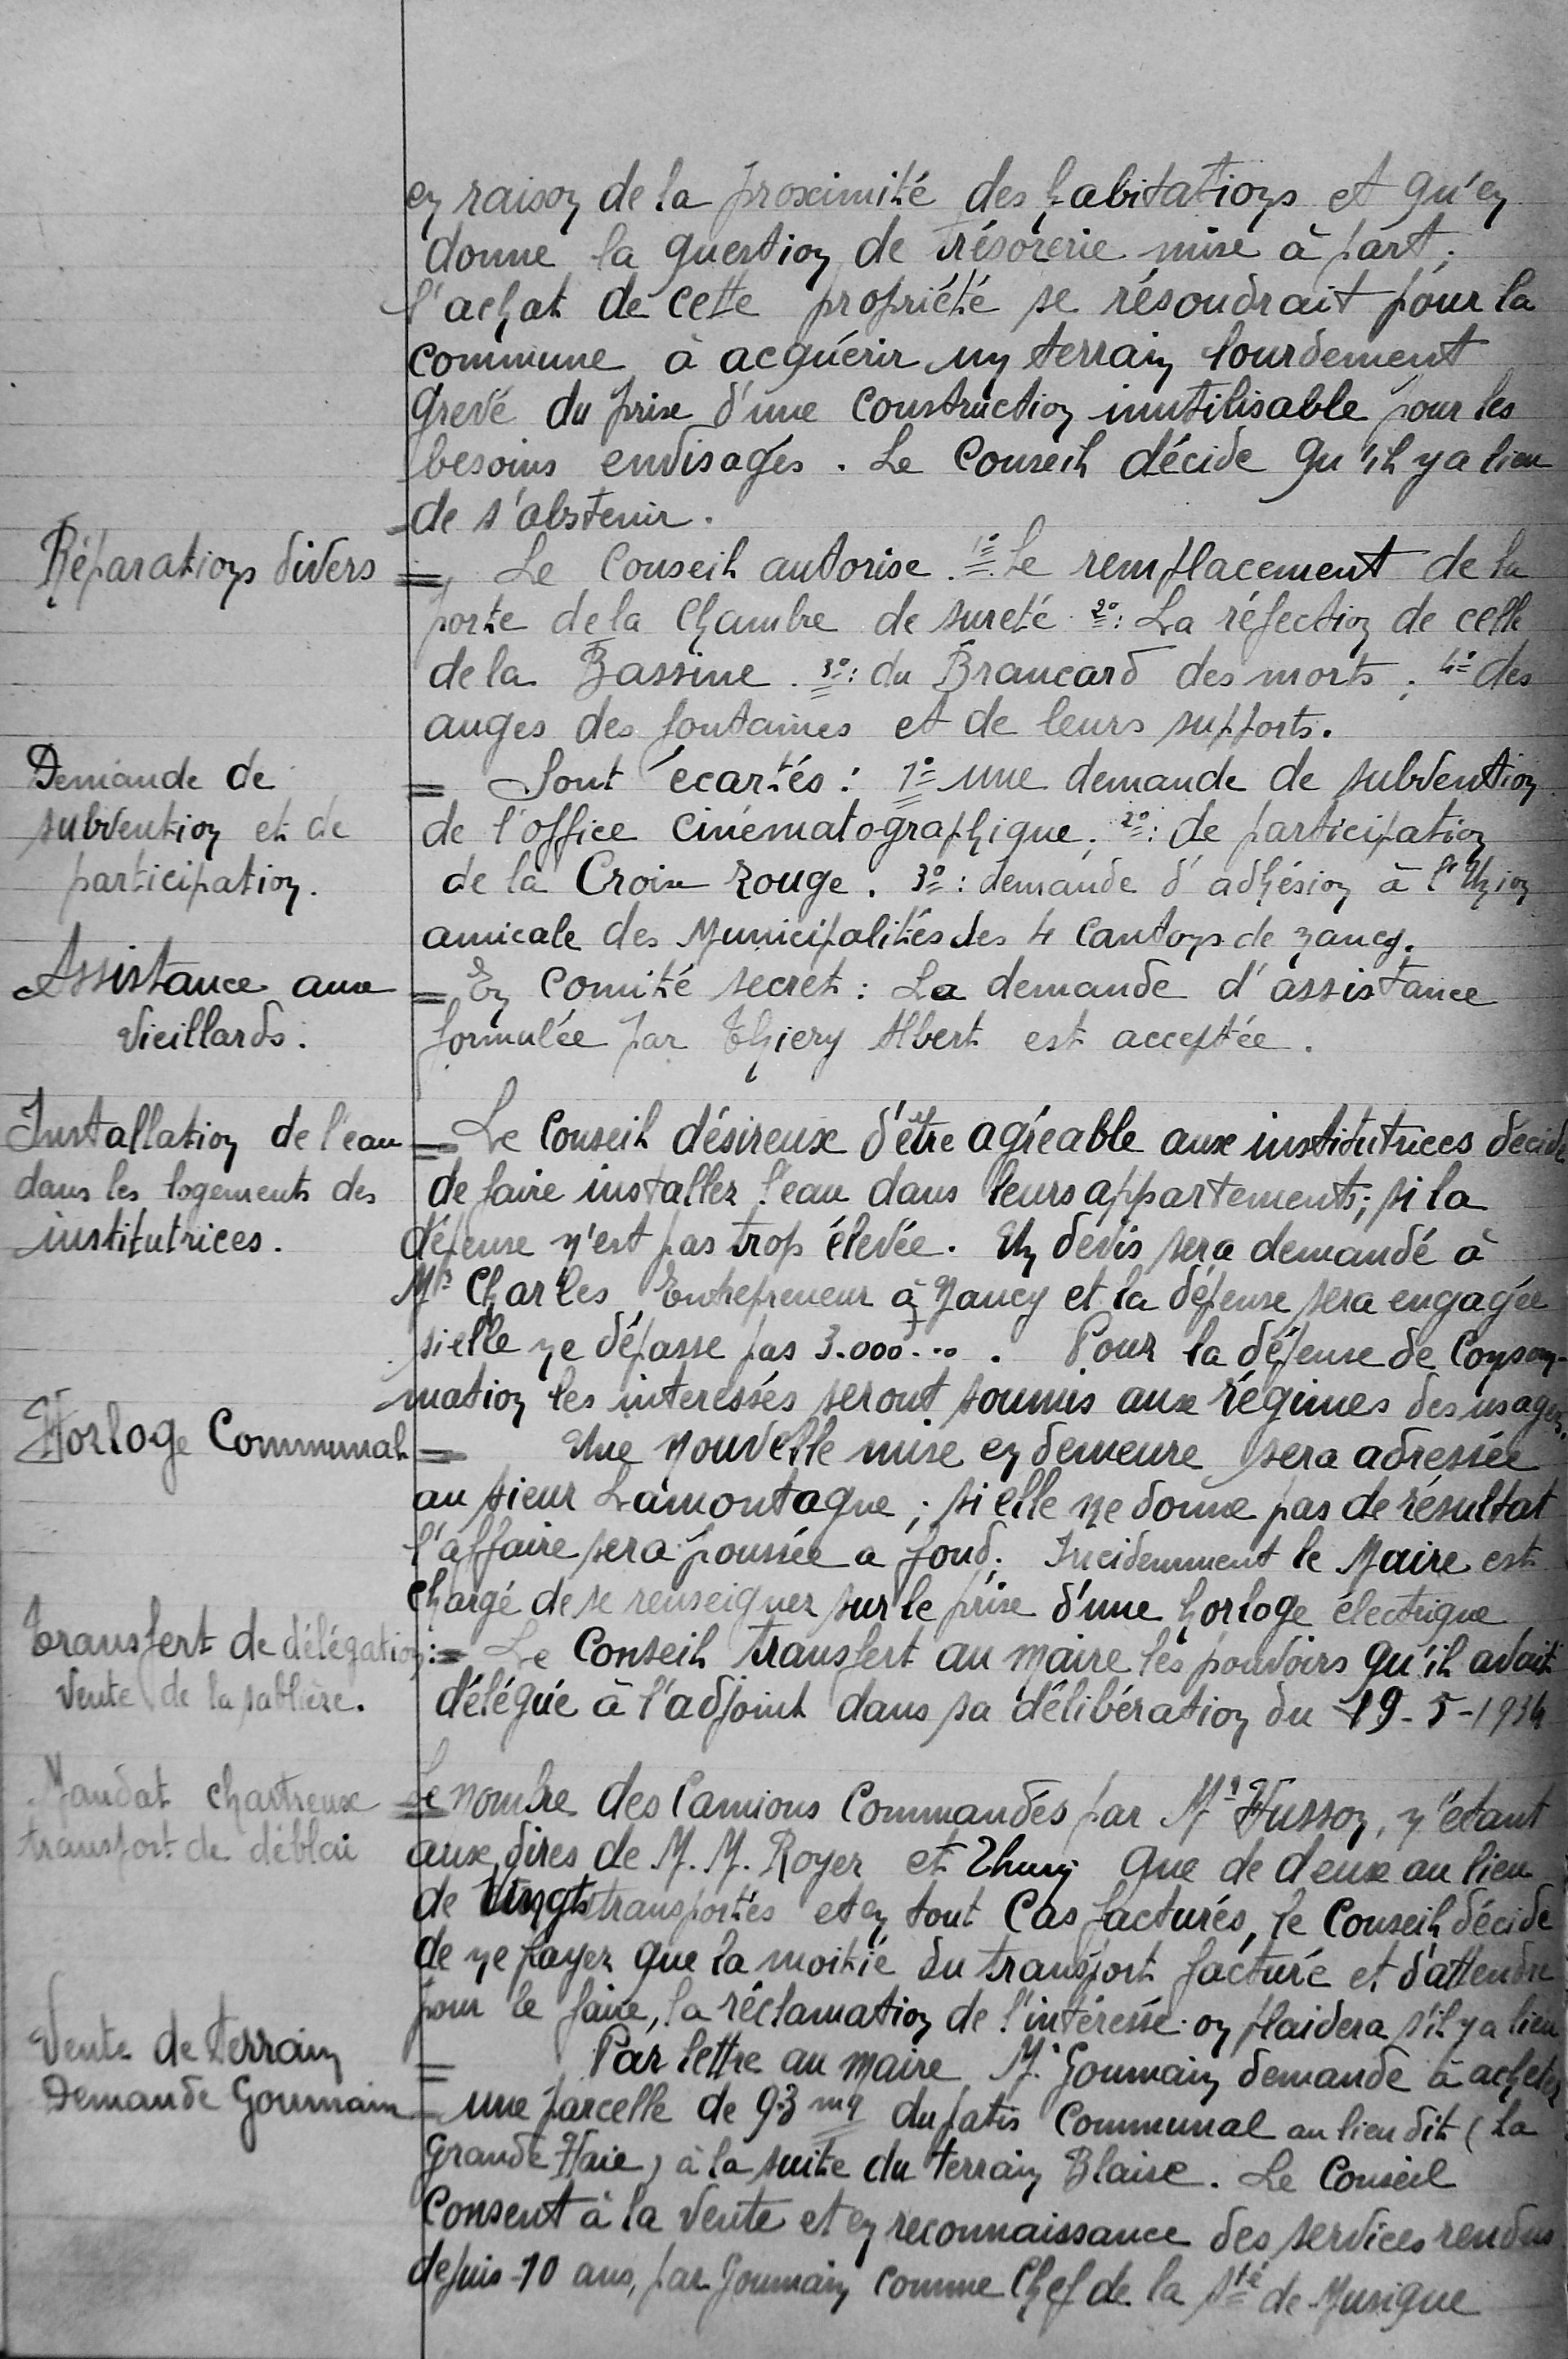 en raison de la proximité des habitations et qu'en
donne la question de trésorerie mise à part;
l'achat de cette propriété se résoudrait pour la
commune à acquérir un terrain lourdement
grevé du prix d'une construction inutilisable pour les
besoins envisagés. Le Conseil décide qu'il y a lieu
de s'abstenir.
Réparations divers
= Le Conseil autorise. 1° Le remplacement de la
porte de la Chambre de sureté 2°: La réfection de celle
de la Bassine. 3°: du Brancard des morts; 4° des
auges des fontaines et de leurs supports.
Demande de
subvention et de
participation.
= Sont écartés: 1° une demande de subvention
de l'office cinématographique; 2°: de participation
de la Croix rouge. 3°: demande d'adhésion à l'Union
amicale des Municipalités des 4 Cantons de nancy.
Assistance aux
vieillards.
= En Comité secret: La demande d'assistance
formulée par Thiery Albert est acceptée.
Installation de l'eau
dans les logements des
institutrices.
= Le Conseil désireux d'être agréable aux institutrices décide
de faire installer l'eau dans leurs appartements; si la
dépense n'est pas trop élevée. Un devis sera demandé à
Mr Charles Entrepreneur à Nancy et la dépense sera engagée
si elle ne dépasse pas 3.000... . Pour la dépense de Consom-
mation les interessés seront soumis aux régimes des usagers.
Horloge Communal
= Une nouvelle mise en demeure sera adressée
au sieur Lamontagne; si elle ne donne pas de résultat
l'affaire sera poussée a fond. Incidemment le Maire est
chargé de se renseigner sur le prix d'une horloge électrique
Transfert de délégation:
vente de la sablière.
= Le Conseil transfert au maire les pouvoirs qu'il avait
délégué à l'adjoint dans sa délibération du 19-5-1934
Mandat chartreux
transport de déblai
= Le nombre des Camions Commandés par Mr Husson, n'étant
aux dires de M.M. Royer et que de deux au lieu
de vingts transportés et en tout Cas facturés, le Conseil décide
de ne payer que la moitié du transport facturé et d'attendre
pour le faire, la réclamation de l'intéressé. on plaidera s'il y a lieu
Vente de terrain
Demande Goumain
= Par lettre au maire M. Goumain demande à acheter
= une parcelle de 93 mq du patis Communal au lieu dit (La
Grande Haie) à la suite du terrain Blaise. Le Conseil
Consent à la vente et en reconnaissance des services rendus
depuis 10 ans, par Goumain Comme Chef de la Sté de Musique